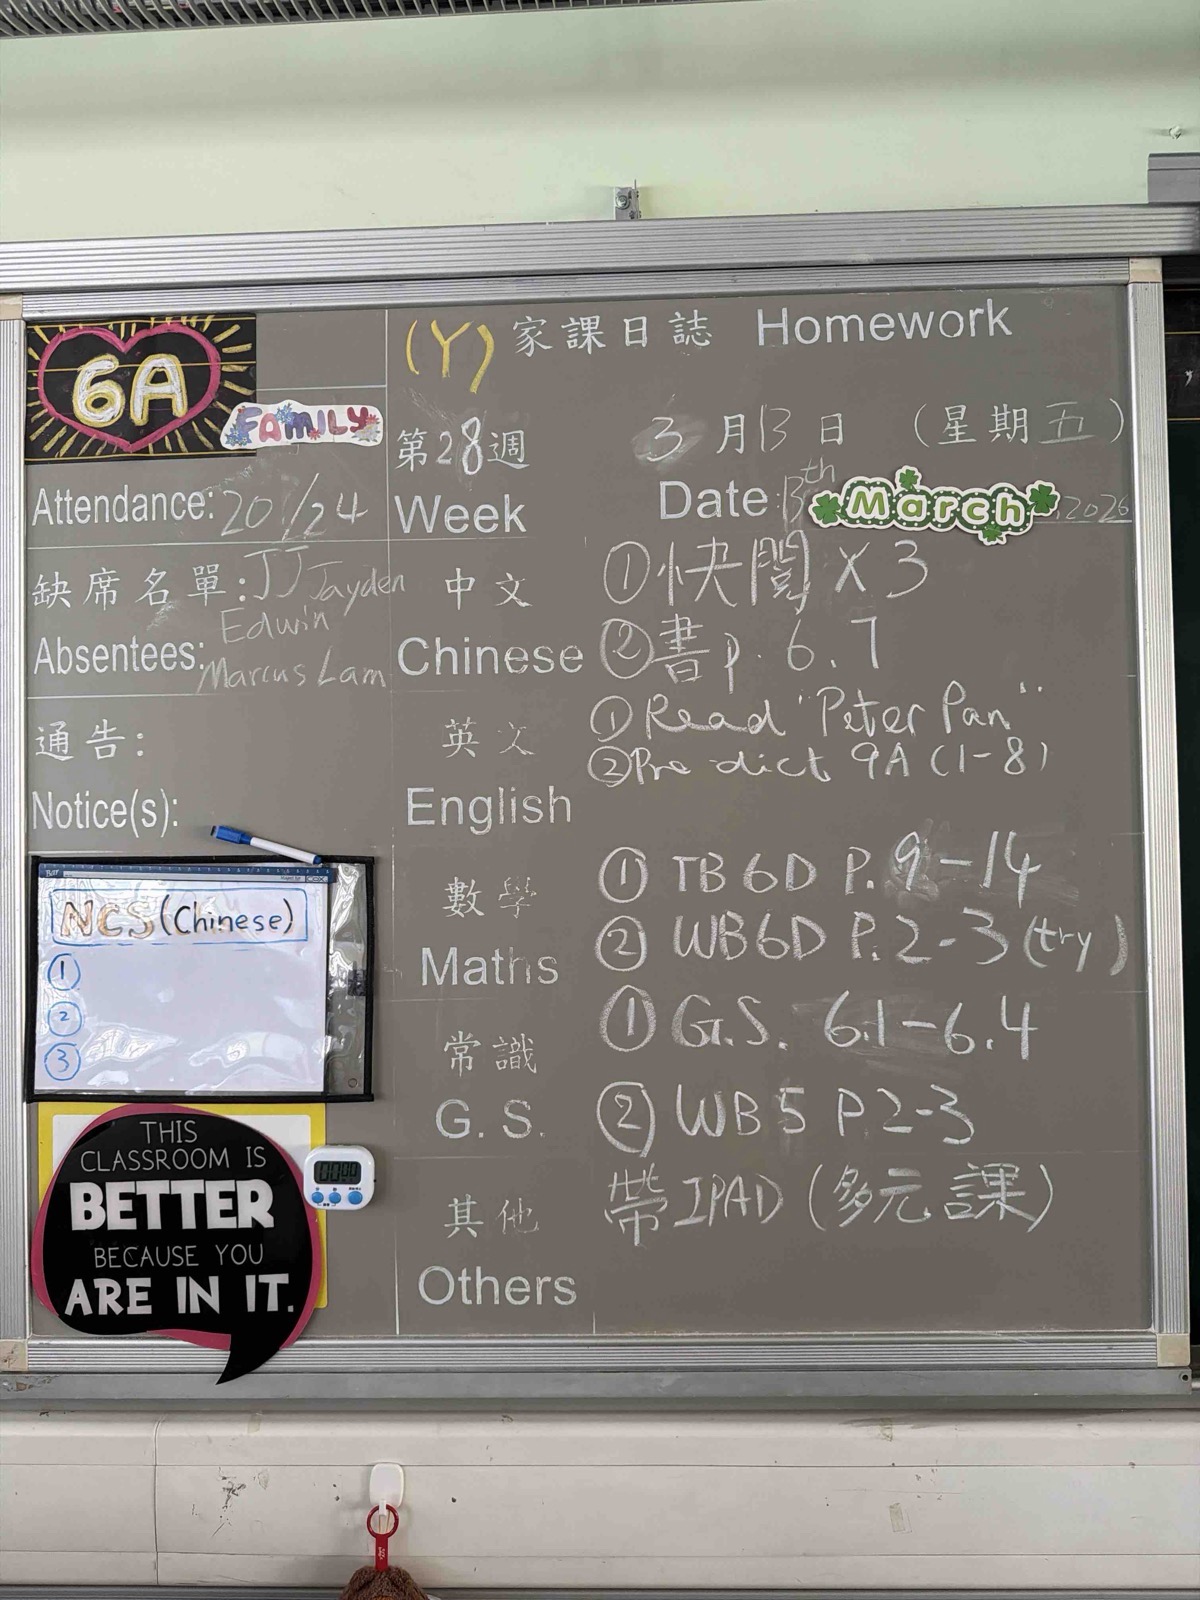 6A
FAMILY
(Y) 家課日誌 Homework
第28週 3月13日 (星期五)
Week Date 13th March, 2026
Attendance: 20/24
缺席名單: JJ Jayden
Edwin
Absentees: Marcus Lam
通告:
Notice(s):
NCS (Chinese)
①
②
③
THIS
CLASSROOM IS
BETTER
BECAUSE YOU
ARE IN IT.
中文 ①快閱 X 3
Chinese ②書p. 6.7
英文 ①Read "Peter Pan"
②Pre-dict 9A (1-8)
English
數學 ① TB 6D P. 9-14
Maths ② WB6D P. 2-3 (try)
常識 ① G.S. 6.1-6.4
G.S. ② WB 5 P 2-3
其他 帶IPAD (多元課)
Others